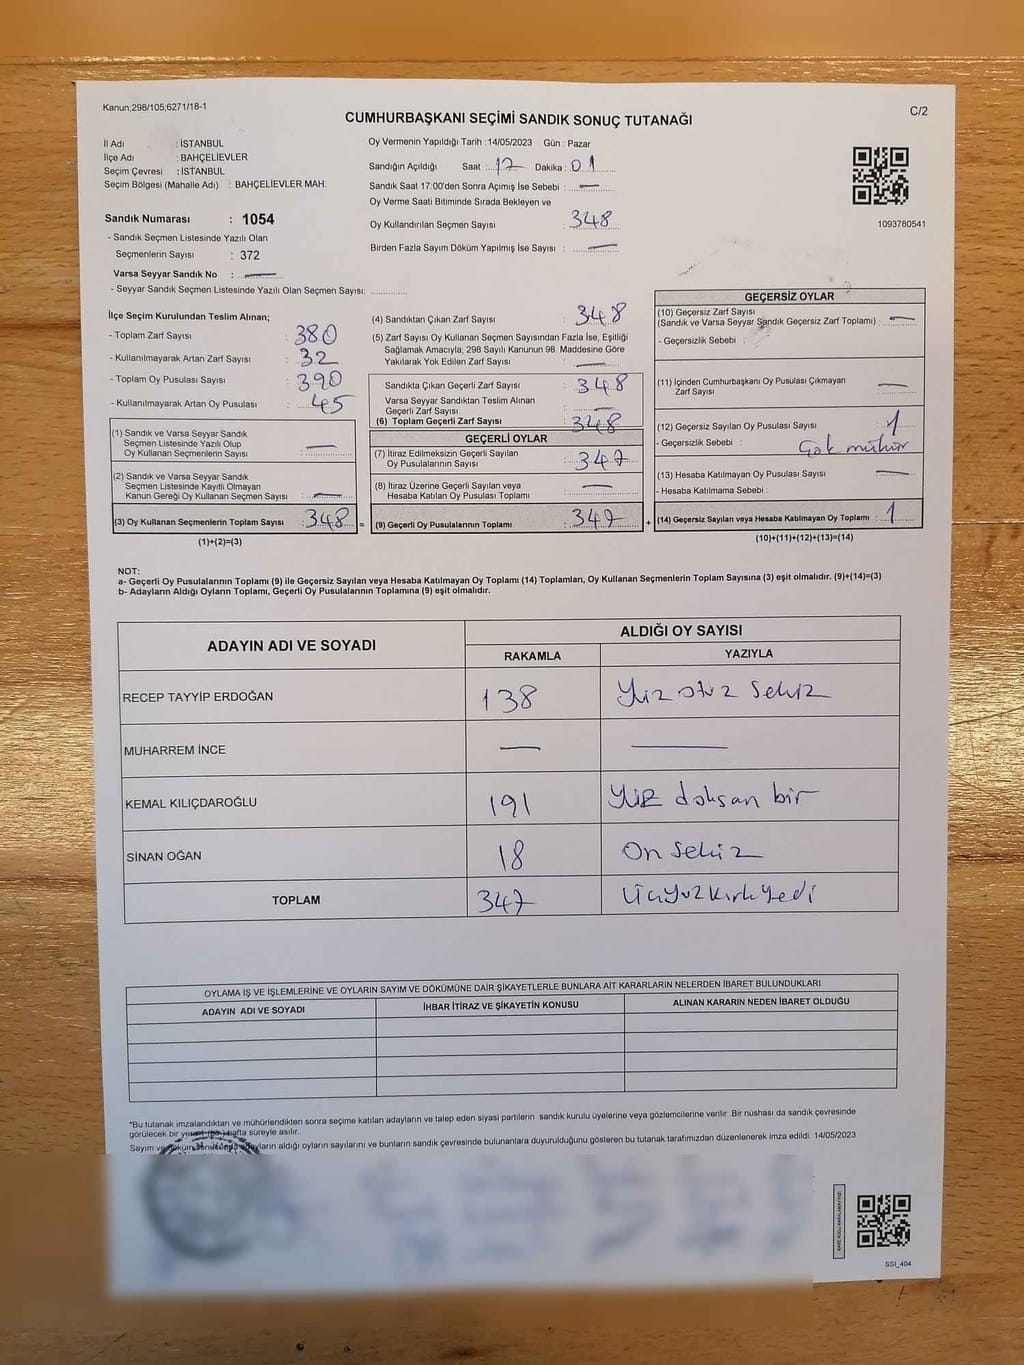 Kanun;298/105,6271/18-1
C/2
CUMHURBAŞKANI SEÇİMİ SANDIK SONUÇ TUTANAĞI
İl Adı : İSTANBUL
İlçe Adı : BAHÇELİEVLER
Seçim Çevresi : İSTANBUL
Seçim Bölgesi (Mahalle Adı) : BAHÇELİEVLER MAH.
Sandık Numarası : 1054
- Sandık Seçmen Listesinde Yazılı Olan
Seçmenlerin Sayısı : 372
Varsa Seyyar Sandık No : —
- Seyyar Sandık Seçmen Listesinde Yazılı Olan Seçmen Sayısı: ............
Oy Vermenin Yapıldığı Tarih : 14/05/2023 Gün : Pazar
Sandığın Açıldığı Saat : 17 Dakika : 01
Sandık Saat 17:00'den Sonra Açımış İse Sebebi : —
Oy Verme Saati Bitiminde Sırada Bekleyen ve
Oy Kullandırılan Seçmen Sayısı : 348
Birden Fazla Sayım Döküm Yapılmış İse Sayısı : —
1093780541
İlçe Seçim Kurulundan Teslim Alınan;
- Toplam Zarf Sayısı : 380
- Kullanılmayarak Artan Zarf Sayısı : 32
- Toplam Oy Pusulası Sayısı : 390
- Kullanılmayarak Artan Oy Pusulası : 45
(1) Sandık ve Varsa Seyyar Sandık
Seçmen Listesinde Yazılı Olup
Oy Kullanan Seçmenlerin Sayısı : —
(2) Sandık ve Varsa Seyyar Sandık
Seçmen Listesinde Kayıtlı Olmayan
Kanun Gereği Oy Kullanan Seçmen Sayısı : —
(3) Oy Kullanan Seçmenlerin Toplam Sayısı : 348 =
(1)+(2)=(3)
(4) Sandıktan Çıkan Zarf Sayısı : 348
(5) Zarf Sayısı Oy Kullanan Seçmen Sayısından Fazla İse, Eşitliği
Sağlamak Amacıyla, 298 Sayılı Kanunun 98. Maddesine Göre
Yakılarak Yok Edilen Zarf Sayısı : —
Sandıkta Çıkan Geçerli Zarf Sayısı : 348
Varsa Seyyar Sandıktan Teslim Alınan
Geçerli Zarf Sayısı : —
(6) Toplam Geçerli Zarf Sayısı : 348
GEÇERLİ OYLAR
(7) İtiraz Edilmeksizin Geçerli Sayılan
Oy Pusulalarının Sayısı : 347
(8) İtiraz Üzerine Geçerli Sayılan veya
Hesaba Katılan Oy Pusulası Toplamı : —
(9) Geçerli Oy Pusulalarının Toplamı : 347 +
GEÇERSİZ OYLAR
(10) Geçersiz Zarf Sayısı
(Sandık ve Varsa Seyyar Sandık Geçersiz Zarf Toplamı) : —
- Geçersizlik Sebebi :
(11) İçinden Cumhurbaşkanı Oy Pusulası Çıkmayan
Zarf Sayısı : —
(12) Geçersiz Sayılan Oy Pusulası Sayısı : 1
- Geçersizlik Sebebi : Çok mühür
(13) Hesaba Katılmayan Oy Pusulası Sayısı : —
- Hesaba Katılmama Sebebi :
(14) Geçersiz Sayılan veya Hesaba Katılmayan Oy Toplamı : 1
(10)+(11)+(12)+(13)=(14)
NOT:
a- Geçerli Oy Pusulalarının Toplamı (9) ile Geçersiz Sayılan veya Hesaba Katılmayan Oy Toplamı (14) Toplamları, Oy Kullanan Seçmenlerin Toplam Sayısına (3) eşit olmalıdır. (9)+(14)=(3)
b- Adayların Aldığı Oyların Toplamı, Geçerli Oy Pusulalarının Toplamına (9) eşit olmalıdır.
ADAYIN ADI VE SOYADI ALDIĞI OY SAYISI
RAKAMLA YAZIYLA
RECEP TAYYİP ERDOĞAN 138 Yüz otuz sekiz
MUHARREM İNCE — —
KEMAL KILIÇDAROĞLU 191 Yüz doksan bir
SİNAN OĞAN 18 On sekiz
TOPLAM 347 Üçyüzkırkyedi
OYLAMA İŞ VE İŞLEMLERİNE VE OYLARIN SAYIM VE DÖKÜMÜNE DAİR ŞİKAYETLERLE BUNLARA AİT KARARLARIN NELERDEN İBARET BULUNDUKLARI
ADAYIN ADI VE SOYADI İHBAR İTİRAZ VE ŞİKAYETİN KONUSU ALINAN KARARIN NEDEN İBARET OLDUĞU
*Bu tutanak imzalandıktan ve mühürlendikten sonra seçime katılan adayların ve talep eden siyasi partilerin sandık kurulu üyelerine veya gözlemcilerine verilir .Bir nüshası da sandık çevresinde
görülecek bir yere 1 (bir) hafta süreyle asılır.
Sayım ve döküm sonucunda adayların aldığı oyların sayılarını ve bunların sandık çevresinde bulunanlara duyurulduğunu gösteren bu tutanak tarafımızdan düzenlenerek imza edildi. 14/05/2023
SSI_404